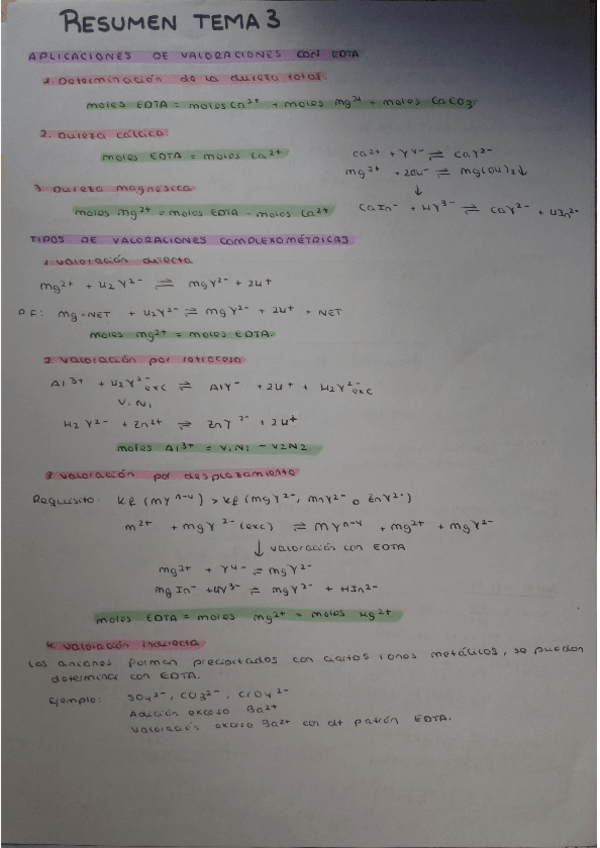 RESUMEN TEMA 3
APLICACIONES DE VALORACIONES CON EDTA
1. Determinación de la dureza total:
moles EDTA = moles Ca²⁺ + moles Mg²⁺ = moles CaCO3
2. Dureza cálcica:
moles EDTA = moles Ca²⁺
Ca²⁺ + Y⁴⁻ ⇌ CaY²⁻
Mg²⁺ + 2OH⁻ ⇌ Mg(OH)2↓
↓
CaIn⁻ + HY³⁻ ⇌ CaY²⁻ + HIn²⁻
3. Dureza magnésica
moles Mg²⁺ = moles EDTA - moles Ca²⁺
TIPOS DE VALORACIONES COMPLEXOMÉTRICAS
1. Valoración directa
Mg²⁺ + H2Y²⁻ ⇌ MgY²⁻ + 2H⁺
P.F: Mg-NET + H2Y²⁻ ⇌ MgY²⁻ + 2H⁺ + NET
moles Mg²⁺ = moles EDTA.
2. Valoración por retroceso
Al³⁺ + H2Y²⁻exc ⇌ AlY⁻ + 2H⁺ + H2Y²⁻exc
V1N1
H2Y²⁻ + Zn²⁺ ⇌ ZnY²⁻ + 2H⁺
moles Al³⁺ = V1N1 - V2N2
3. Valoración por desplazamiento
Requisito: Kf (MYⁿ⁻⁴) > Kf (MgY²⁻, MnY²⁻ o ZnY²⁻)
M²⁺ + MgY²⁻ (exc) ⇌ MYⁿ⁻⁴ + Mg²⁺ + MgY²⁻
↓ valoración con EDTA
Mg²⁺ + Y⁴⁻ ⇌ MgY²⁻
MgIn⁻ + HY³⁻ ⇌ MgY²⁻ + HIn²⁻
moles EDTA = moles Mg²⁺ = moles Hg²⁺
4. Valoración indirecta
Los aniones forman precipitados con ciertos iones metálicos, se pueden
determinar con EDTA.
Ejemplo: SO4²⁻, CO3²⁻, CrO4²⁻
Adición exceso Ba²⁺
Valoración exceso Ba²⁺ con dt patrón EDTA.